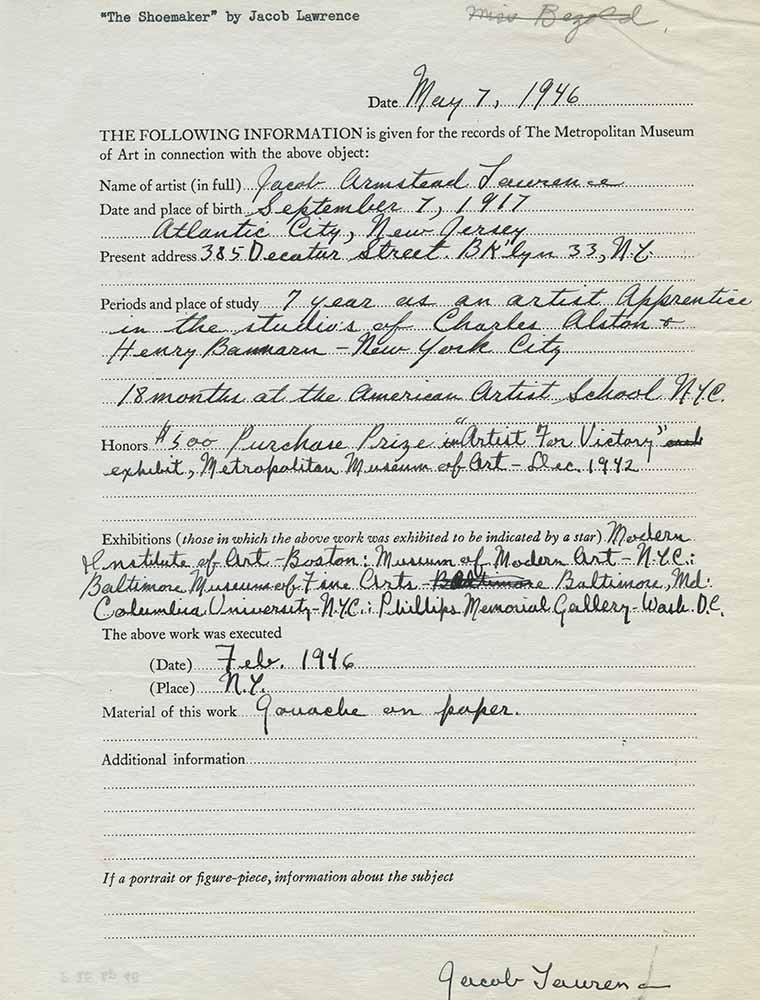 "The Shoemaker" by Jacob Lawrence
Miss Bezold
Date May 7, 1946
THE FOLLOWING INFORMATION is given for the records of The Metropolitan Museum
of Art in connection with the above object:
Name of artist (in full) Jacob Armstead Lawrence
Date and place of birth September 7, 1917
Atlantic City, New Jersey
Present address 385 Decatur Street. BK'lyn 33, N.Y.
Periods and place of study 7 year as an artist Apprentice
in the studio's of Charles Alston &
Henry Bannarn - New York City
18 months at the American Artist School N.Y.C.
Honors $500 Purchase Prize in "Artist For Victory"
exhibit, Metropolitan Museum of Art - Dec. 1942
Exhibitions (those in which the above work was exhibited to be indicated by a star) Modern
Institute of Art - Boston: Museum of Modern Art - N.Y.C.:
Baltimore Museum of Fine Arts - Baltimore Baltimore, Md:
Columbia University - N.Y.C.: Phillips Memorial Gallery - Wash. D.C.
The above work was executed
(Date) Feb. 1946
(Place) N.Y.
Material of this work Gouache on paper.
Additional information
If a portrait or figure-piece, information about the subject
Jacob Lawrence